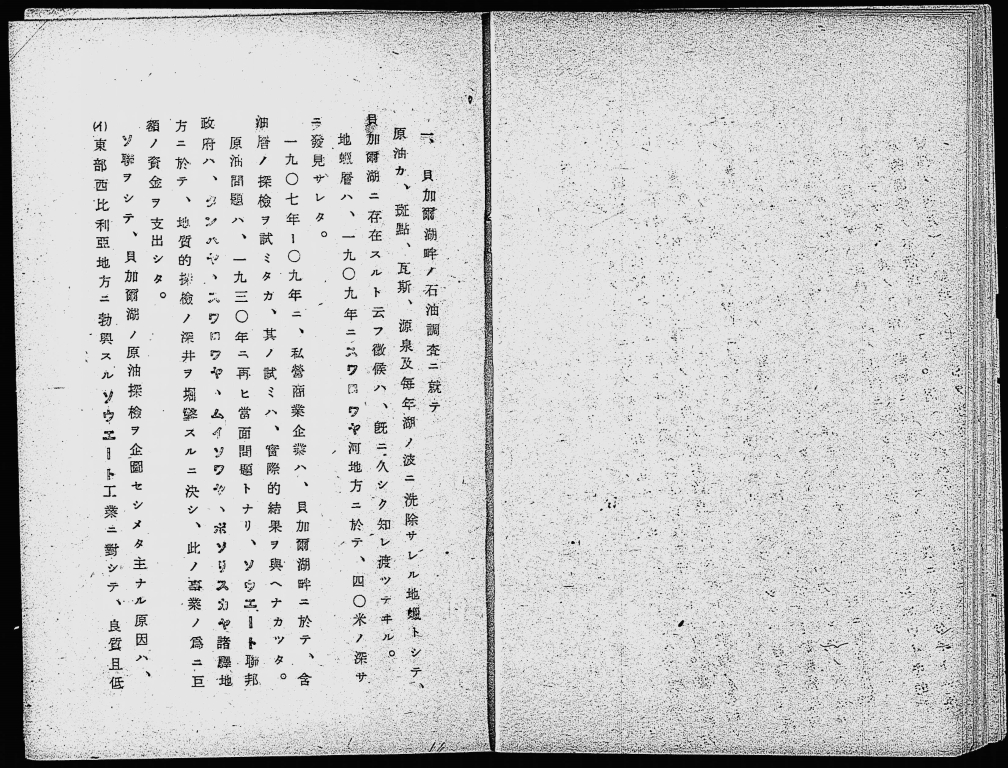 一、貝加爾湖畔ノ石油調査ニ就テ
原油カ、斑點、瓦斯、源泉及每年湖ノ波ニ洗除サレル地蠟トシテ、
貝加爾湖ニ存在スルト云フ徵候ハ、旣ニ久シク知レ渡ツテヰル。
地蠟層ハ、一九〇九年ニスワロワヤ河地方ニ於テ、四〇米ノ深サ
ニ發見サレタ。
一九〇七年ー〇九年ニ、私營商業企業ハ、貝加爾湖畔ニ於テ、含
油層ノ探檢ヲ試ミタカ、其ノ試ミハ、實際的結果ヲ與ヘナカツタ。
原油問題ハ、一九三〇年ニ再ヒ當面問題トナリ、ソウエート聯邦
政府ハ、タンハヤ、スワロワヤ、ムイソワヤ、ボソリスカヤ諸驛地
方ニ於テ、地質的探檢ノ深井ヲ堀鑿スルニ決シ、此ノ事業ノ爲ニ巨
額ノ資金ヲ支出シタ。
ソ聯ヲシテ、貝加爾湖ノ原油探檢ヲ企圖セシメタ主ナル原因ハ、
(イ)東部西比利亞地方ニ勃興スルソウエート工業ニ對シテ、良質且低